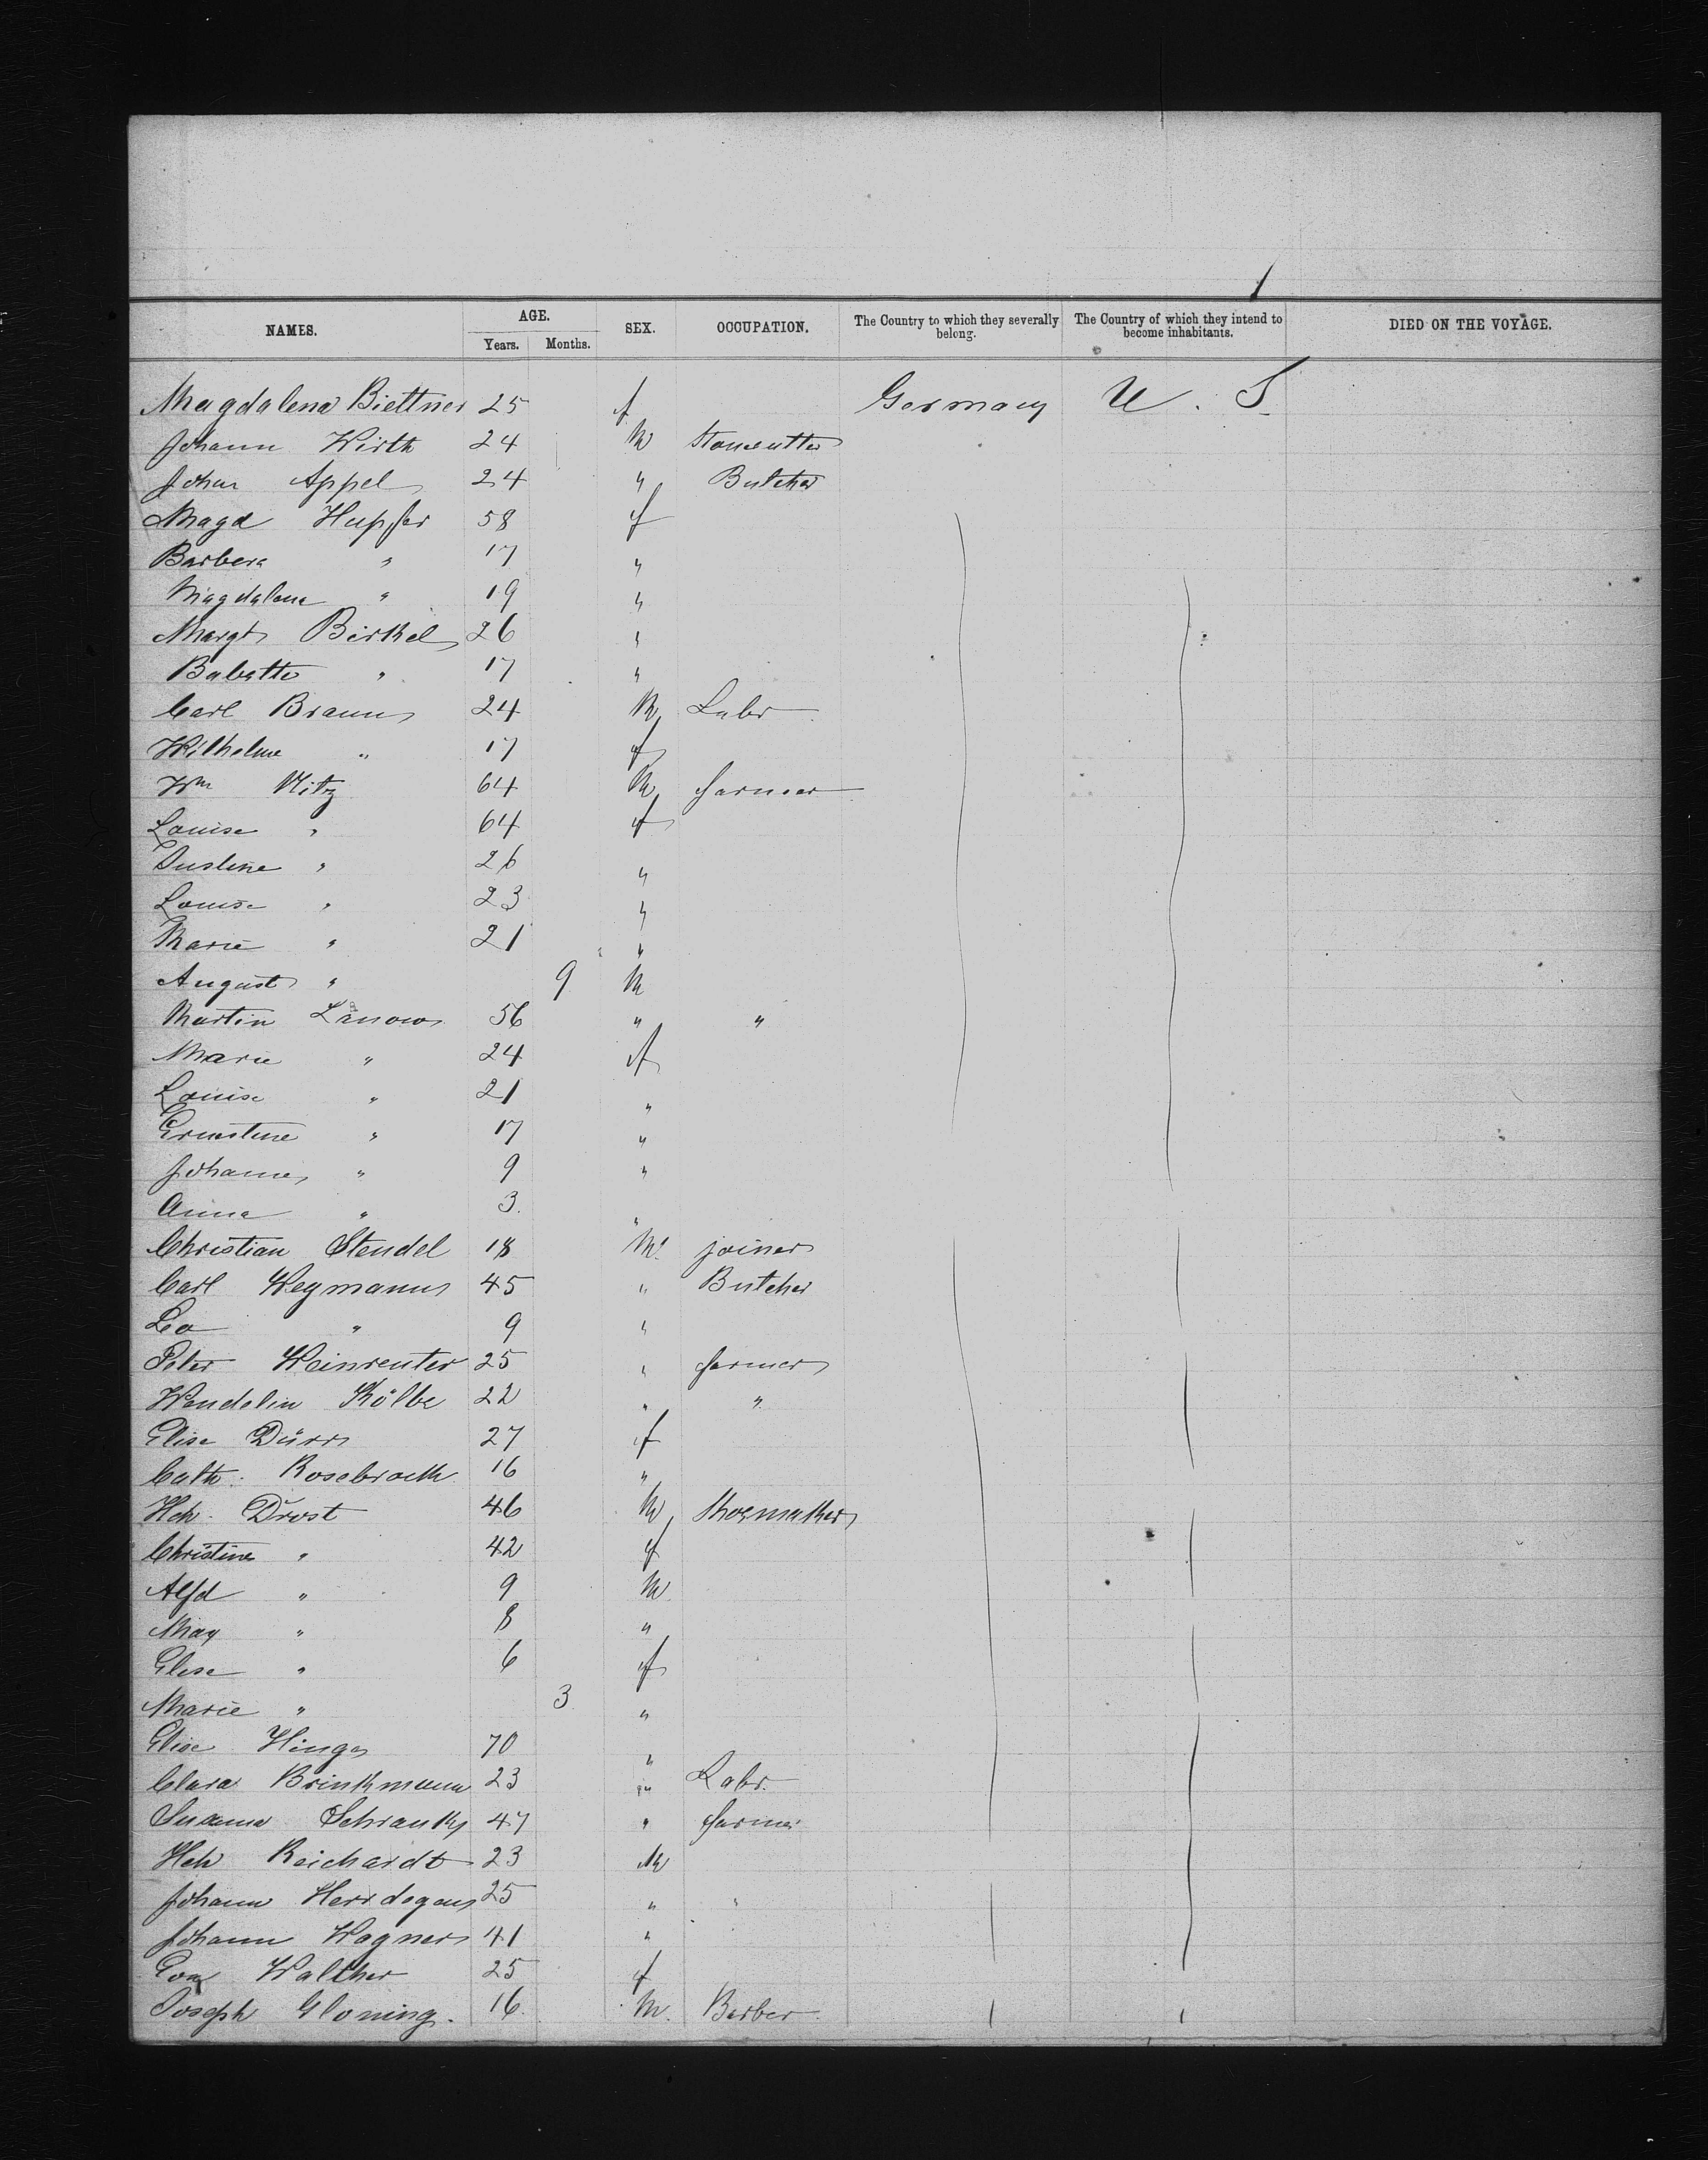 NAMES. AGE. SEX. OCCUPATION. The Country to which they severally belong. The Country of which they intend to become inhabitants. DIED ON THE VOYAGE.
Years. Months.
Magdalena Biettner 25 f Germany U. S
Johann Wirth 24 M Stonecutter
Johan Appel 24 " Butcher
Magd Hupfer 58 f
Barbera " 17 "
Magdalene " 19 "
Margt Birkel 26 "
Babette " 17 "
Carl Braun 24 M Labr
Wilhelme " 17 f
Wm Nitz 64 M farmer
Louise " 64 f
Justine " 26 "
Louise " 23 "
Marie " 21 "
August " 9 M
Martin Lanow 56 " "
Marie " 24 f
Louise " 21 "
Ernestine " 17 "
Johanne " 9 "
Anna " 3. "
Christian Stendel 18 M. joiner
Carl Wegmann 45 " Butcher
Leo " 9 "
Peter Weinreuter 25 " farmer
Wendelin Kölbe 22 " "
Elise Dürr 27 f
Cath. Rosebrock 16 "
Hch. Drost 46 M Shoemaker
Christine " 42 f
Alfd " 9 M
Max " 8 "
Elise " 6 f
Marie " 3 "
Elise Hinge 70 "
Clara Brinkmann 23 " Labr.
Susanna Schrank 47 " farmer
Hch Reichardt 23 M
Johann Herrdegen 25 " "
Johann Wagner 41 "
Eva Walther 25 f
Joseph Gloning. 16 M. Barber